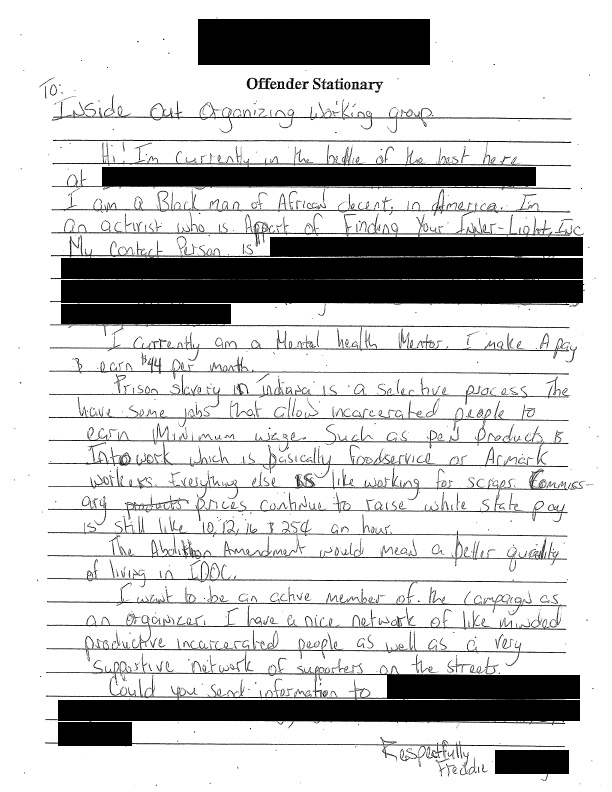 Offender Stationary
To:
Inside Out Organizing Working group
Hi! I'm currently in the bellie of the best here
at
I am a Black man of African decent, in America. I'm
an activist who is Appart of Finding Your Inner-Light, Inc
My Contact Person is
I currently am a Mental health Mentor. I make A pay
& earn $44 per month.
Prison slavery in Indiana is a selective process The
have some jobs that allow incarcerated people to
earn Minimum wage. Such as pen Products &
Into work which is basically foodservice or Armark
workers. Everything else is like working for scraps. Commiss-
ary products prices continue to raise while state pay
is still like 10, 12, 16 & 25¢ an hour.
The Abolition Amendment would mean a better quality
of living in IDOC.
I want to be an active member of the Campaign as
an organizer. I have a nice network of like minded
productive incarcerated people as well as a very
supportive network of supporters on the streets.
Could you send information to
Respectfully
Freddie